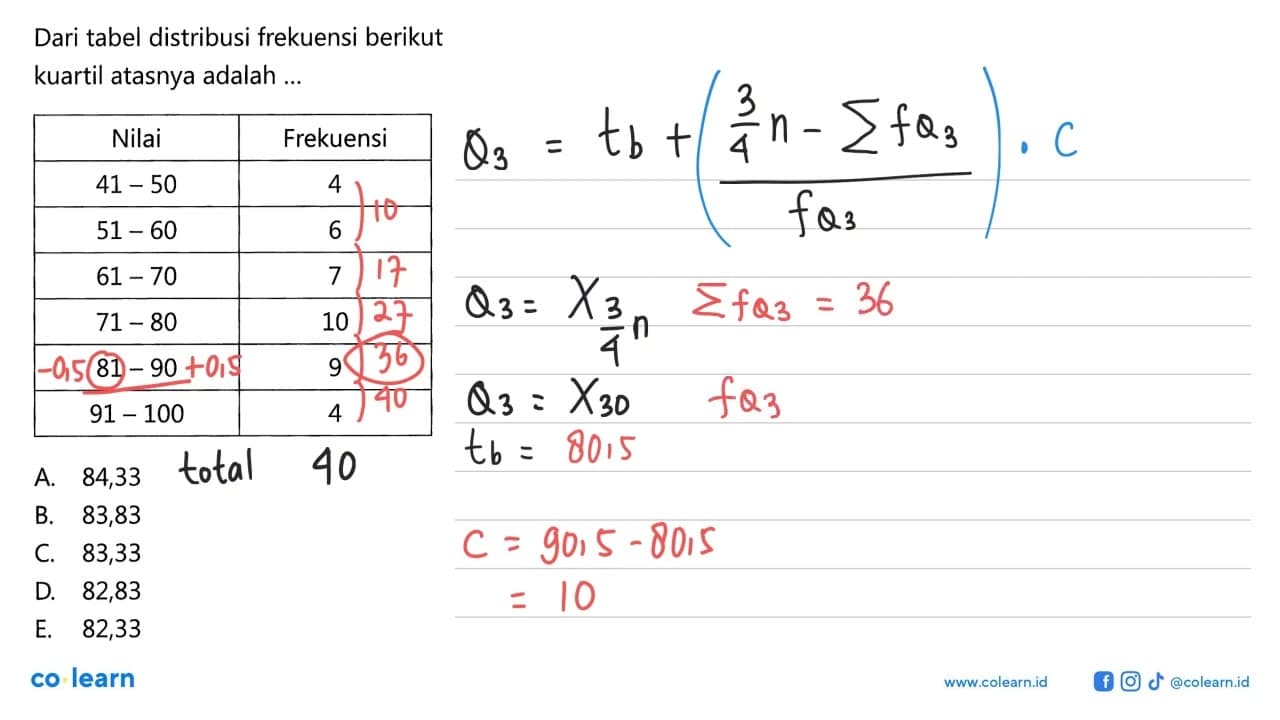 Dari tabel distribusi frekuensi berikut
kuartil atasnya adalah ...
Nilai Frekuensi
41 – 50 4
51 – 60 6
10
61 – 70 7
17
71 – 80 10
27
-0,5 81 – 90 +0,5 9
36
91 – 100 4
40
total 40
A. 84,33
B. 83,83
C. 83,33
D. 82,83
E. 82,33
Q3 = tb + (3/4 n - Σ fQ3 / fQ3) . C
Q3 = X 3/4 n Σ fQ3 = 36
Q3 = X30 fQ3
tb = 80,5
C = 90,5 - 80,5
= 10
co learn
www.colearn.id @colearn.id